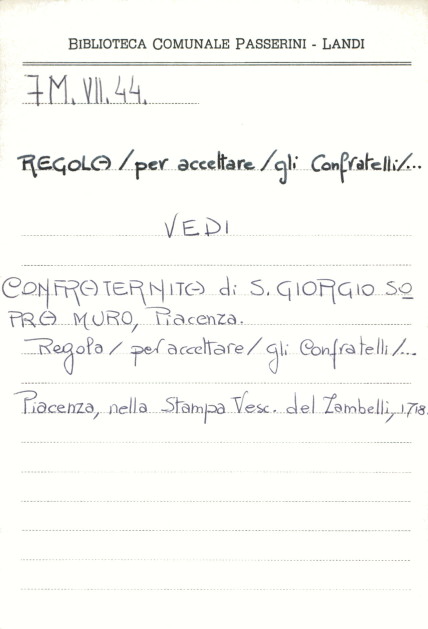 BIBLIOTECA COMUNALE PASSERINI - LANDI
7M.VII.44.
REGOLA / per accettare / gli Confratelli/...
VEDI
CONFRATERNITA di S. GIORGIO SO
PRA MURO, Piacenza.
Regola / per accettare / gli Confratelli /...
Piacenza, nella Stampa Vesc. del Zambelli, 1718.